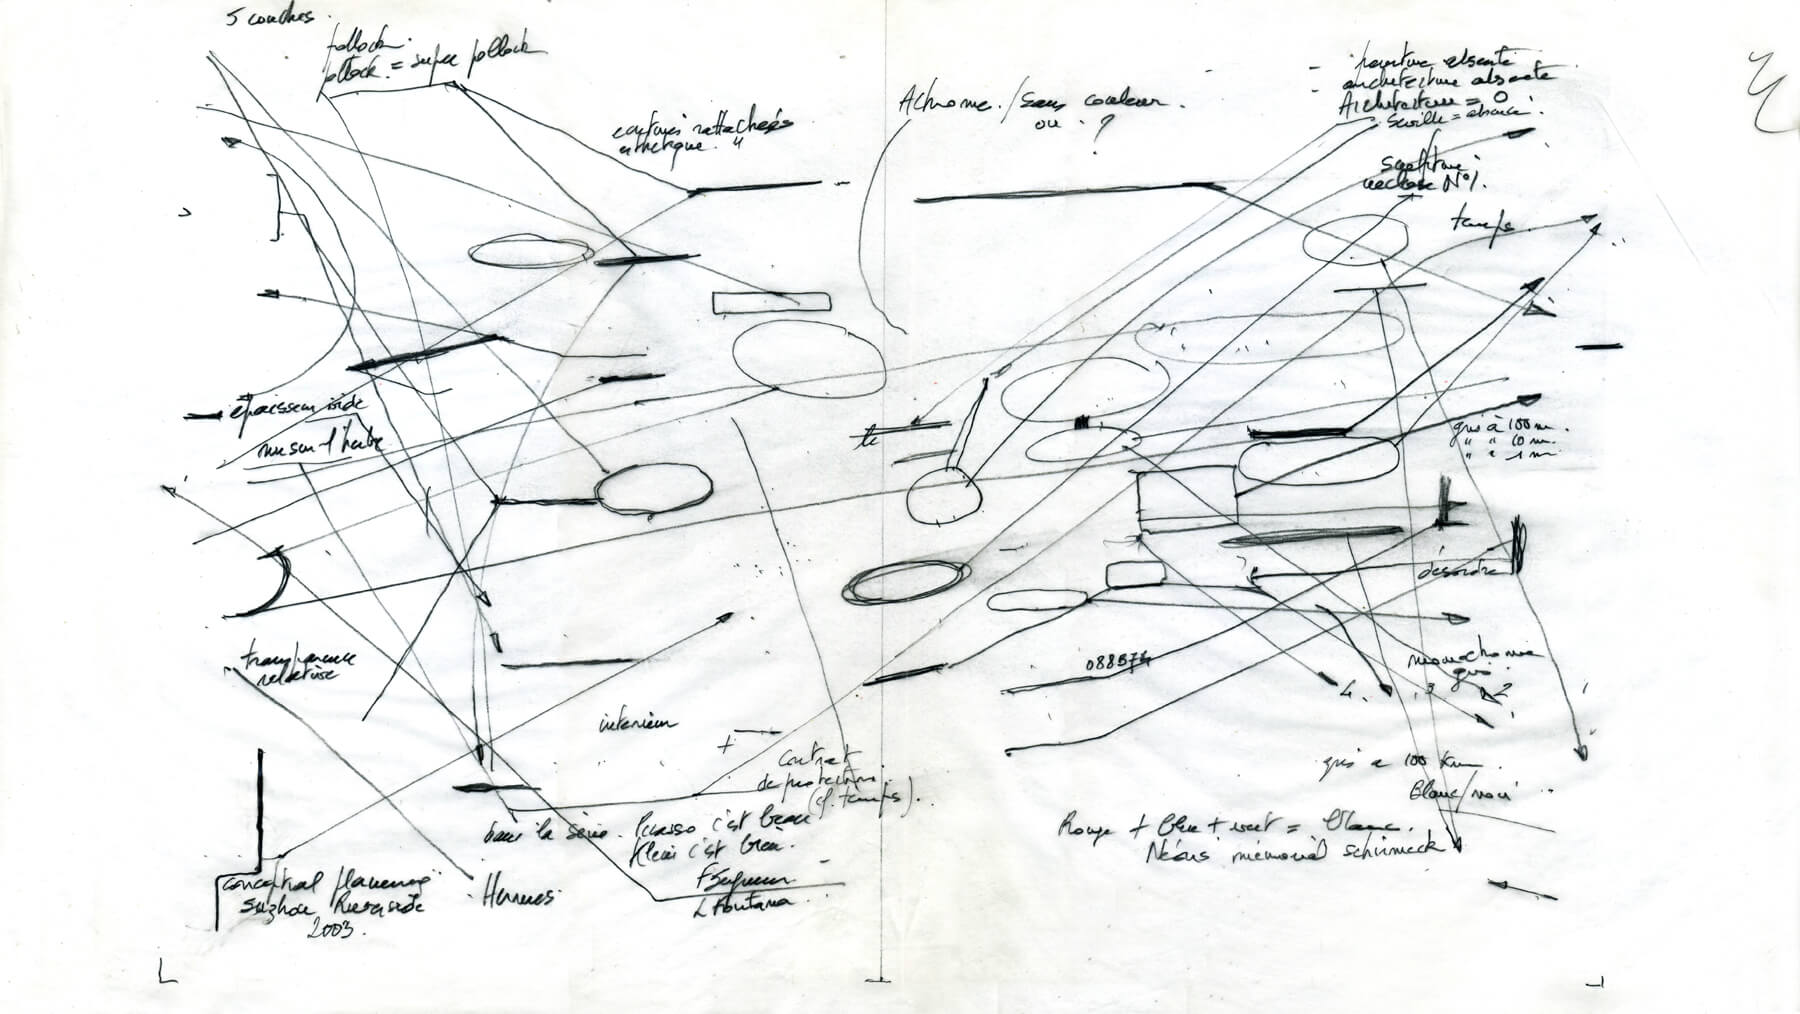 5 couches.
pollock.
pollock = super pollock
rattachés
Achrome. / sans couleur.
ou ?
peinture absente
architecture absente
Architecture = 0
Séville = absence.
sculpture
N°1.
temps.
épaisseur vide
nu sur l'herbe
le
gris à 100 m.
" " 10 m.
" à 1 m.
désordre
transparence
relative
088574
monochrome
gris
4. 3 2
intérieur
+
contrat
de protection
(cf. temps).
gris à 100 Km.
Blanc/noir
dans la série. Picasso c'est beau
Klein c'est bien.
Rouge + bleu + vert = blanc.
Néons mémorial schirmeck
F Seigneur
L Fontana.
conceptual planning
Suzhou Riverside
2003.
Hermès